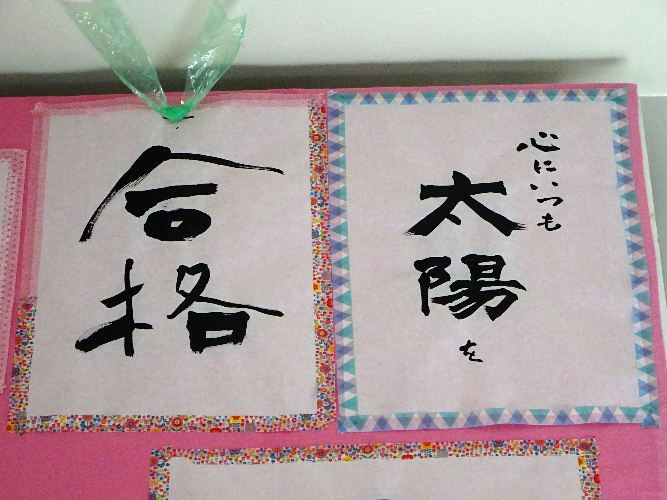 合格
心にいつも
太陽を